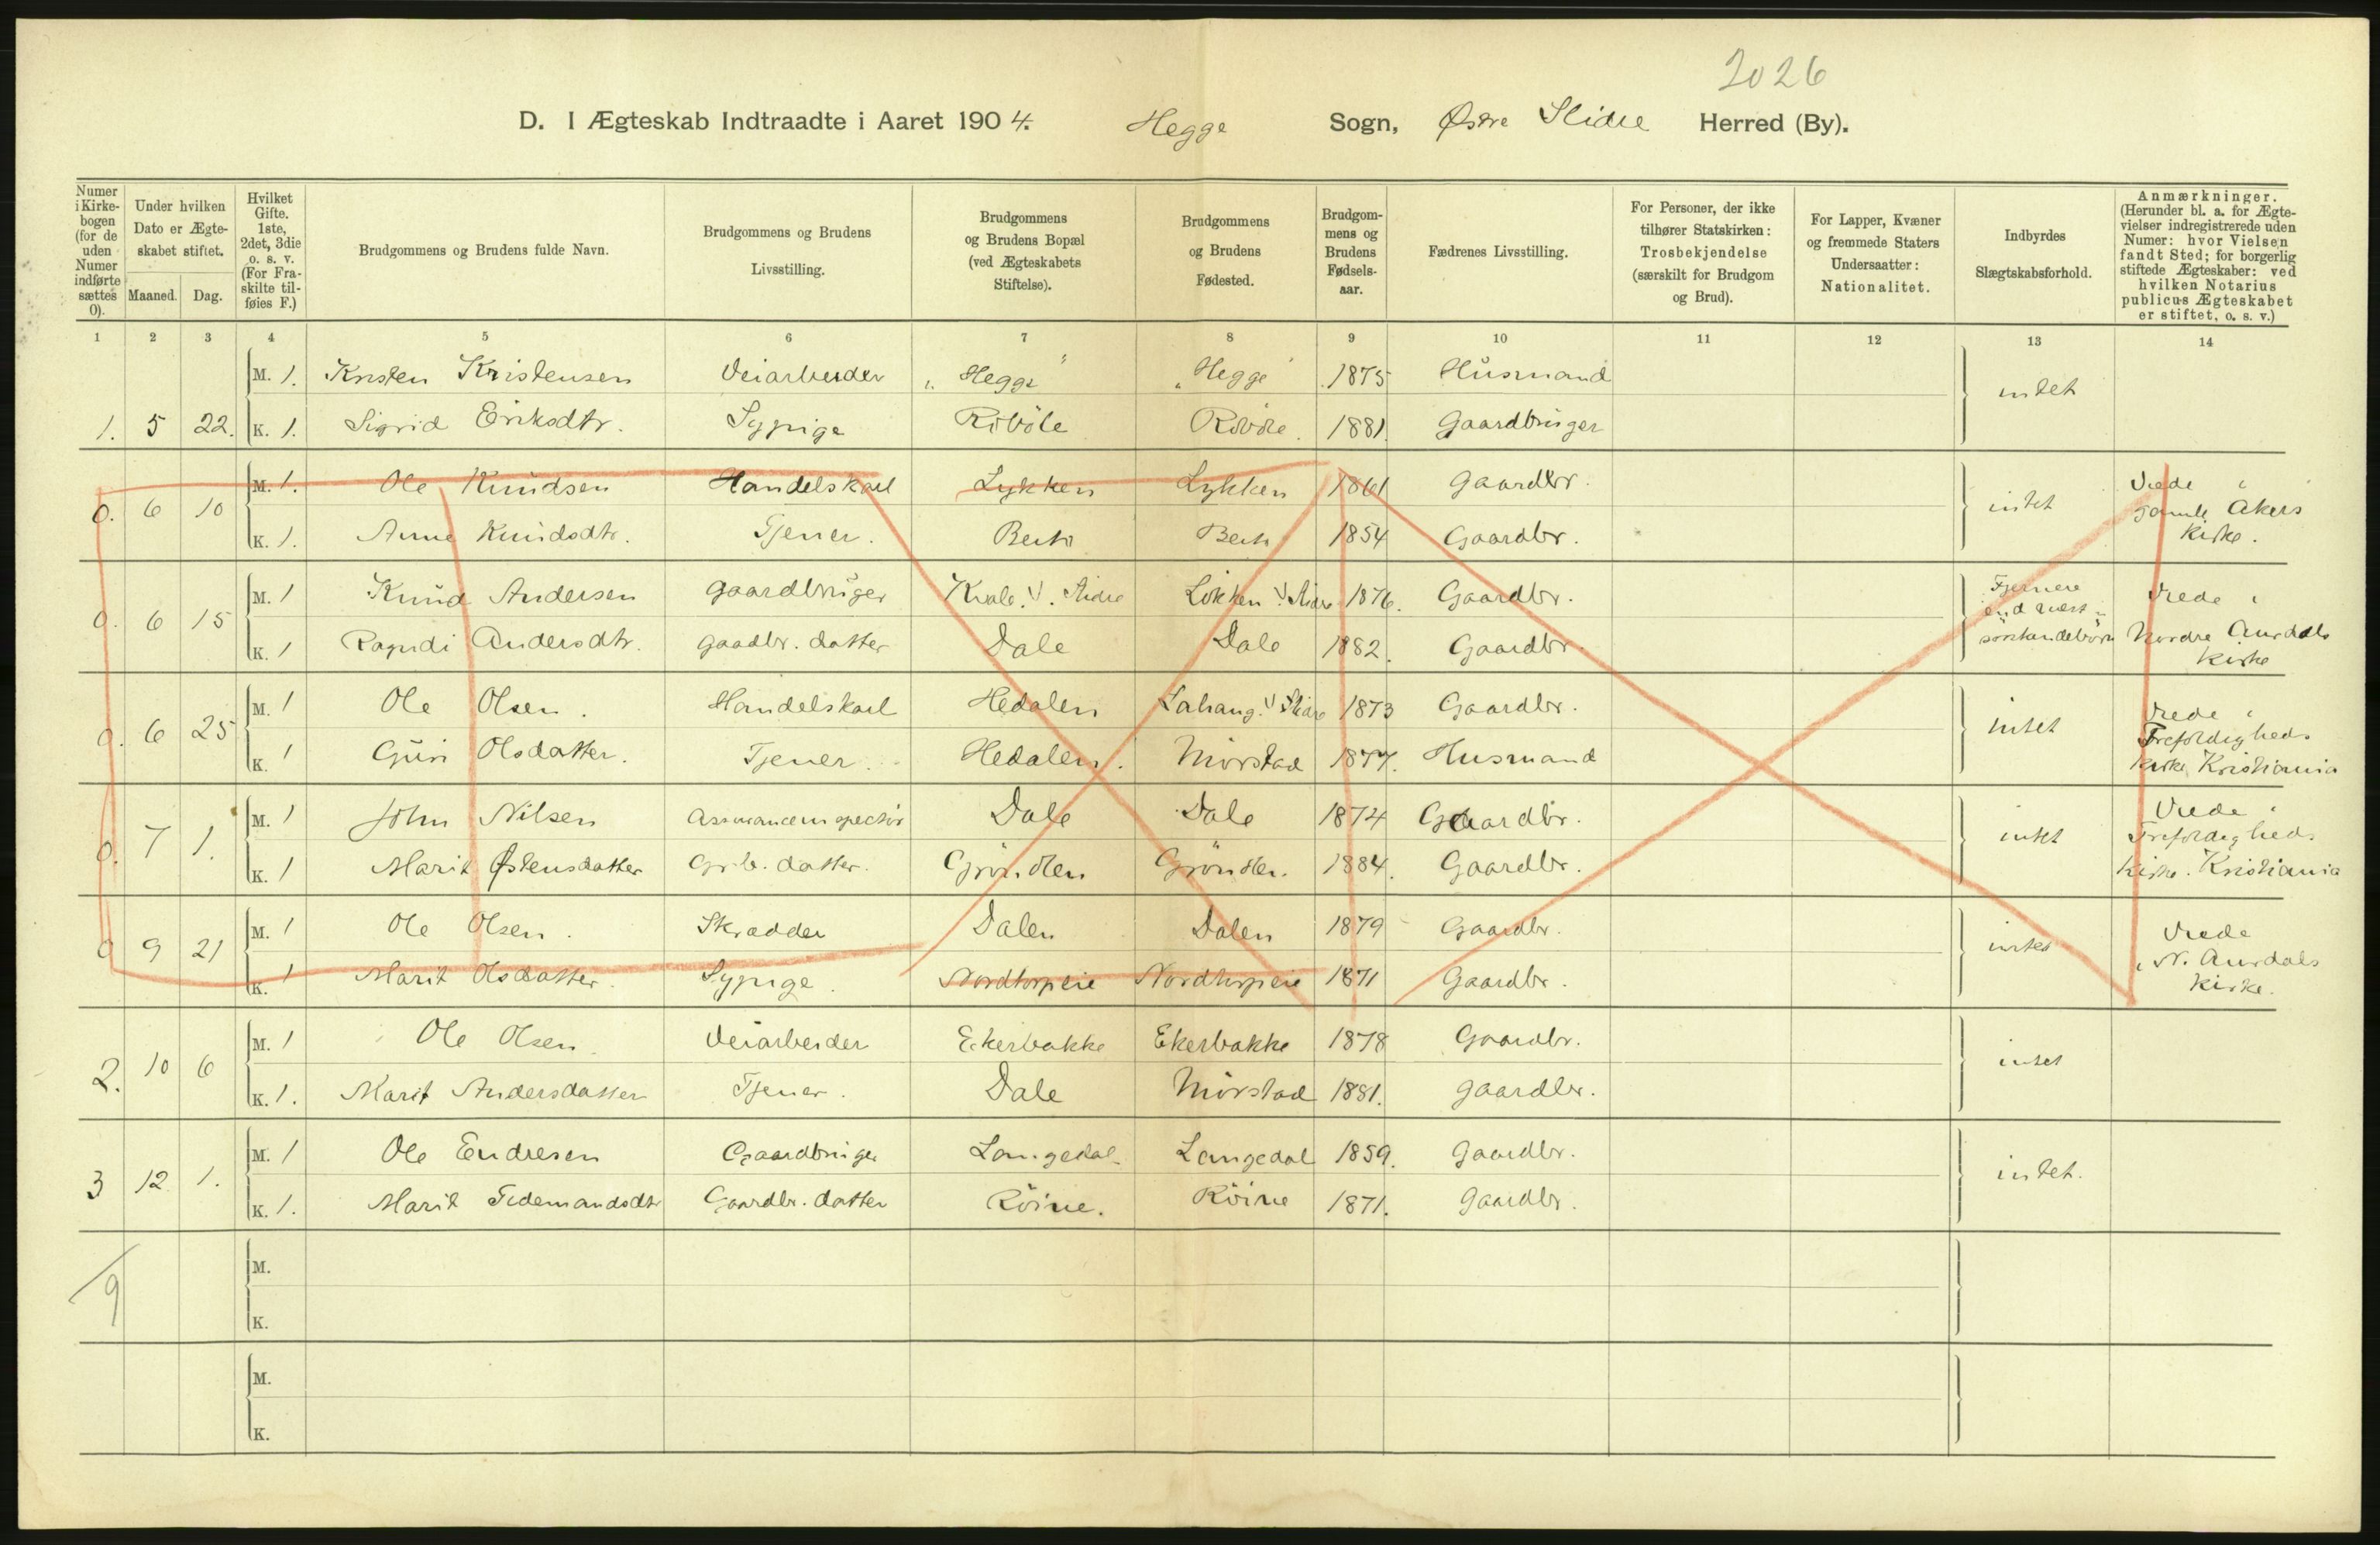 2026
D. I Ægteskab Indtraadte i Aaret 1904. Hegge Sogn, Østre Slidre Herred (By).
Numer i Kirke-bogen (for de uden Numer indførte sættes 0).
Under hvilken Dato er Ægte-skabet stiftet.
Maaned. Dag.
Hvilket Gifte. 1ste, 2det, 3die o. s. v. (For Fra-skilte til-føies F.)
Brudgommens og Brudens fulde Navn.
Brudgommens og Brudens Livsstilling.
Brudgommens og Brudens Bopæl (ved Ægteskabets Stiftelse).
Brudgommens og Brudens Fødested.
Brudgom-mens og Brudens Fødsels-aar.
Fædrenes Livsstilling.
For Personer, der ikke tilhører Statskirken: Trosbekjendelse (særskilt for Brudgom og Brud).
For Lapper, Kvæner og fremmede Staters Undersaatter: Nationalitet.
Indbyrdes Slægtskabsforhold.
Anmærkninger. (Herunder bl. a. for Ægte-vielser indregistrerede uden Numer: hvor Vielsen fandt Sted; for borgerlig stiftede Ægteskaber: ved hvilken Notarius publicus Ægteskabet er stiftet, o. s. v.)
1 2 3 4 5 6 7 8 9 10 11 12 13 14
M. 1. Kristen Kristensen Veiarbeider Hegge Hegge 1875 Husmand intet
1. 5 22. K. 1. Sigrid Eriksdtr. Sypige Robøle Robøle 1881 Gaardbruger
M. 1. Ole Knudsen Handelskarl Lykken Lykken 1861 Gaardbr. intet Viede i gamle Akers Kirke.
0. 6 10 K. 1. Anne Knudsdtr. Tjener. 1854 Gaardbr.
M. 1 Knud Andersen Gaardbruger V. Slidre Løkken V. Slidre 1876. Gaardbr. Fjernere end næst-søskendebørn Viede i Nordre Aurdals Kirke
0. 6 15 K. 1 Ragndi Andersdtr. Gaardbr. datter Dale Dale 1882. Gaardbr.
M. 1 Ole Olsen. Handelskarl Hedalen V. Slidre 1873 Gaardbr. intet Viede i Trefoldigheds Kirke Kristiania
0. 6 25 K. 1 Guri Olsdatter. Tjener. Hedalen. Mørstad 1877. Husmand
M. 1 John Nilsen Assuranceinspectør Dale Dale 1874 Gaardbr. intet Viede i Trefoldigheds Kirke. Kristiania
0. 7 1. K. 1 Marit Østensdatter Grb. datter. Grønolen Grønolen. 1884. Gaardbr.
M. 1 Ole Olsen. Skrædder Dalen Dalen 1879 Gaardbr. intet Viede i N. Aurdals Kirke.
0 9 21 K. 1 Marit Olsdatter. Sypige. Nordtorpeie Nordtorpeie 1871 Gaardbr.
M. 1 Ole Olsen Veiarbeider Ekerbakke Ekerbakke 1878 Gaardbr. intet
2. 10 6 K. 1. Marit Andersdatter Tjener. Dale Mørstad 1881. Gaardbr.
M. 1 Ole Endresen Gaardbruger Langedal Langedal 1859. Gaardbr. intet.
3 12 1. K. 1. Marit Tidemandsdtr Gaardbr. datter Røine. Røine 1871. Gaardbr.
M.
9
K.
M.
K.